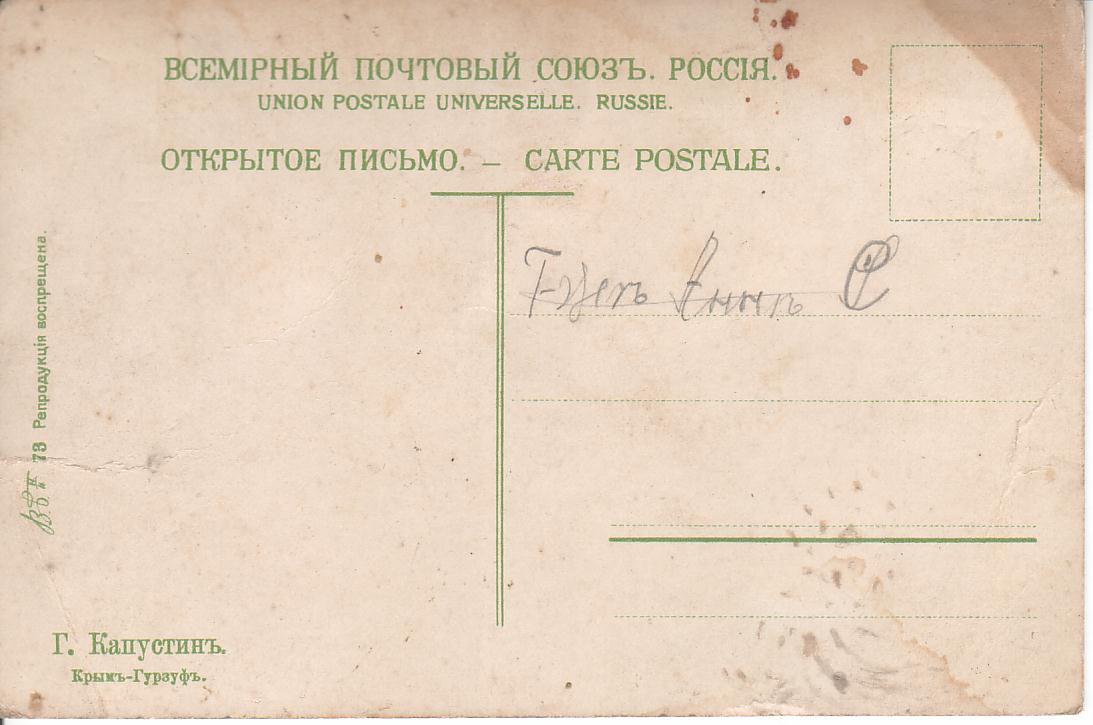 ВСЕМІРНЫЙ ПОЧТОВЫЙ СОЮЗЪ. РОССІЯ.
UNION POSTALE UNIVERSELLE. RUSSIE.
ОТКРЫТОЕ ПИСЬМО. — CARTE POSTALE.
73 Репродукція воспрещена.
Г. Капустинъ.
Крымъ-Гурзуфъ.